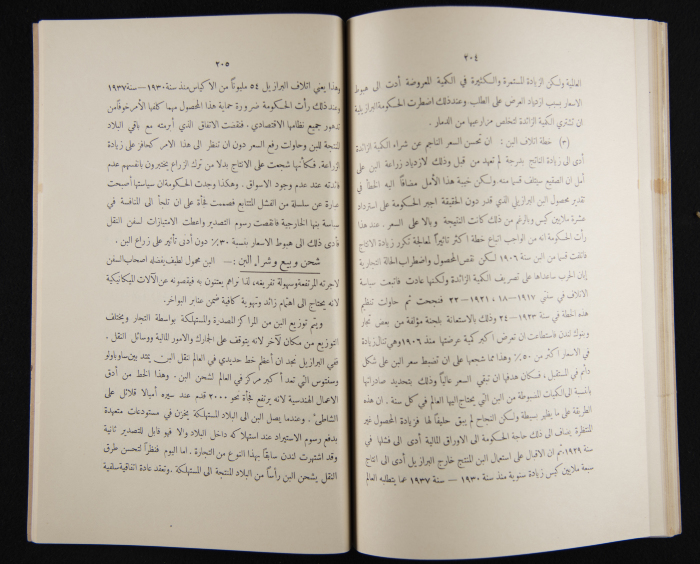 ٢٠٤
العالمية ولكن الزيادة المستمرة والكثيرة في الكمية المعروضة أدت الى هبوط
الاسعار بسبب ازدياد العرض على الطلب وعندذلك اضطرت الحكومة البرازيلية
ان تشتري الكمية الزائدة لتخلص مزارعيها من الدمار .
(٣) خطة اتلاف البن : ان تحسن السعر الناجم عن شراء الكمية الزائدة
أدى الى زيادة الناتج بدرجة لم تعهد من قبل وذلك لازدياد زراعة البن على
أمل ان الصقيع سيتلف قسما منه ولكن خيبة هذا الأمل مضافا اليه الخطأ في
تقدير محصول البن البرازيلي الذي قدر دون الحقيقة اجبر الحكومة على استرداد
عشرة ملايين كيس وبالرغم من ذلك كانت النتيجة وبالا على السعر . عند هذا
رأت الحكومة انه من الواجب اتباع خطة اكثر تاثيراً لمعالجة تكرر زيادة الانتاج
فاتلفت قسما من البن سنة ١٩٠٦ لكن نقص المحصول واضطراب الحالة التجارية
إبان الحرب ساعداها على تصريف الكمية الزائدة ولكنها عادت فاتبعت سياسة
الاتلاف في سنتي ١٩١٧—١٨ ، ١٩٢١—٢٢ فنجحت ثم حاولت تنظيم
هذه الخطة في سنة ١٩٢٣—٢٤ وذلك بالاستعانة بلجنة مؤلفة من بعض تجار
وبنوك لندن فاستطاعت ان تعرض اكبر كمية عرضتها منذ ١٩٠٦ وهي تنال زيادة
في الاسعار اكثر من ٥٠٪ وهذا ما شجعها على ان تضبط سعر البن على شكل
دائم في المستقبل ، فكان هدفها ان تبقي السعر عالياً وذلك بتحديد صادراتها
بالنسبة الى الكميات المنسوطة من البن التي يحتاج اليها العالم في كل سنة . ان هذه
الطريقة على ما يظهر بسيطة ولكن النجاح لم يبق حليفا لها فزيادة المحصول غير
المنتظرة يضاف الى ذلك حاجة الحكومة الى الاوراق المالية أدى الى فشلها في
سنة ١٩٢٩، ثم ان الاقبال على استعمال البن المنتج خارج البرازيل أدى الى انتاج
سبعة ملايين كيس زيادة سنوية منذ سنة ١٩٣٠ — سنة ١٩٣٧ عما يتطلبه العالم
٢٠٥
وهذا يعني اتلاف البرازيل ٥٤ مليوناً من الاكياس منذ سنة ١٩٣٠—سنة ١٩٣٧
وعند ذلك رأت الحكومة ضرورة حماية هذا المحصول مهما كلفها الأمر خوفا من
تدهور جميع نظامها الاقتصادي . فنقضت الاتفاق الذي أبرمته مع باقي البلاد
المنتجة للبن وحاولت رفع السعر دون ان تنظر الى هذا الامر كحافز على زيادة
الزراعة . فكأنها شجعت على الانتاج بدلا من ترك الزراع يختبرون بانفسهم عدم
فائدته عند عدم وجود الاسواق . وهكذا وجدت الحكومة ان سياستها أصبحت
عبارة عن سلسلة من الفشل المتتابع فصممت فجأة على ان تلجأ الى المنافسة في
سياسة بنها الخارجية فانقصت رسوم التصدير واعطت الامتيازات لسفن النقل
فأدى ذلك الى هبوط الاسعار بنسبة ٣٠٪ دون أدنى تأثير على زراع البن .
شحن وبيع وشراء البن :— البن محمول لطيف يفضله اصحاب السفن
لاجرته المرتفعة وسهولة تفريغه، لذا نراهم يعتنون به فيقصونه عن الآلات الميكانيكية
لانه يحتاج الى اهتمام زائد وتهوية كافية ضمن عنابر البواخر .
ويتم توزيع البن من المراكز المصدرة والمستهلكة بواسطة التجار ويختلف
التوزيع من مكان لآخر لانه يتوقف على الجمارك والامور المالية ووسائل النقل .
ففي البرازيل نجد ان أعظم خط حديدي في العالم لنقل البن يمتد بين ساوباولو
وسنتوس التي تعد أكبر مركز في العالم لشحن البن . وهذا الخط من أدق
الاعمال الهندسية لانه يرتفع فجأة نحو ٣٠٠٠ قدم عند سيره أميالا قلائل على
الشاطئ . وعندما يصل البن الى البلاد المستهلكة يخزن في مستودعات متعهدة
بدفع رسوم الاستيراد عند استهلاكه داخل البلاد والا فهو قابل للتصدير ثانية
وقد اشتهرت لندن سابقا بهذا النوع من التجارة . اما اليوم فنظراً لتحسن طرق
النقل يشحن البن رأساً من البلاد المنتجة الى المستهلكة . وتعقد عادة اتفاقية سلفية